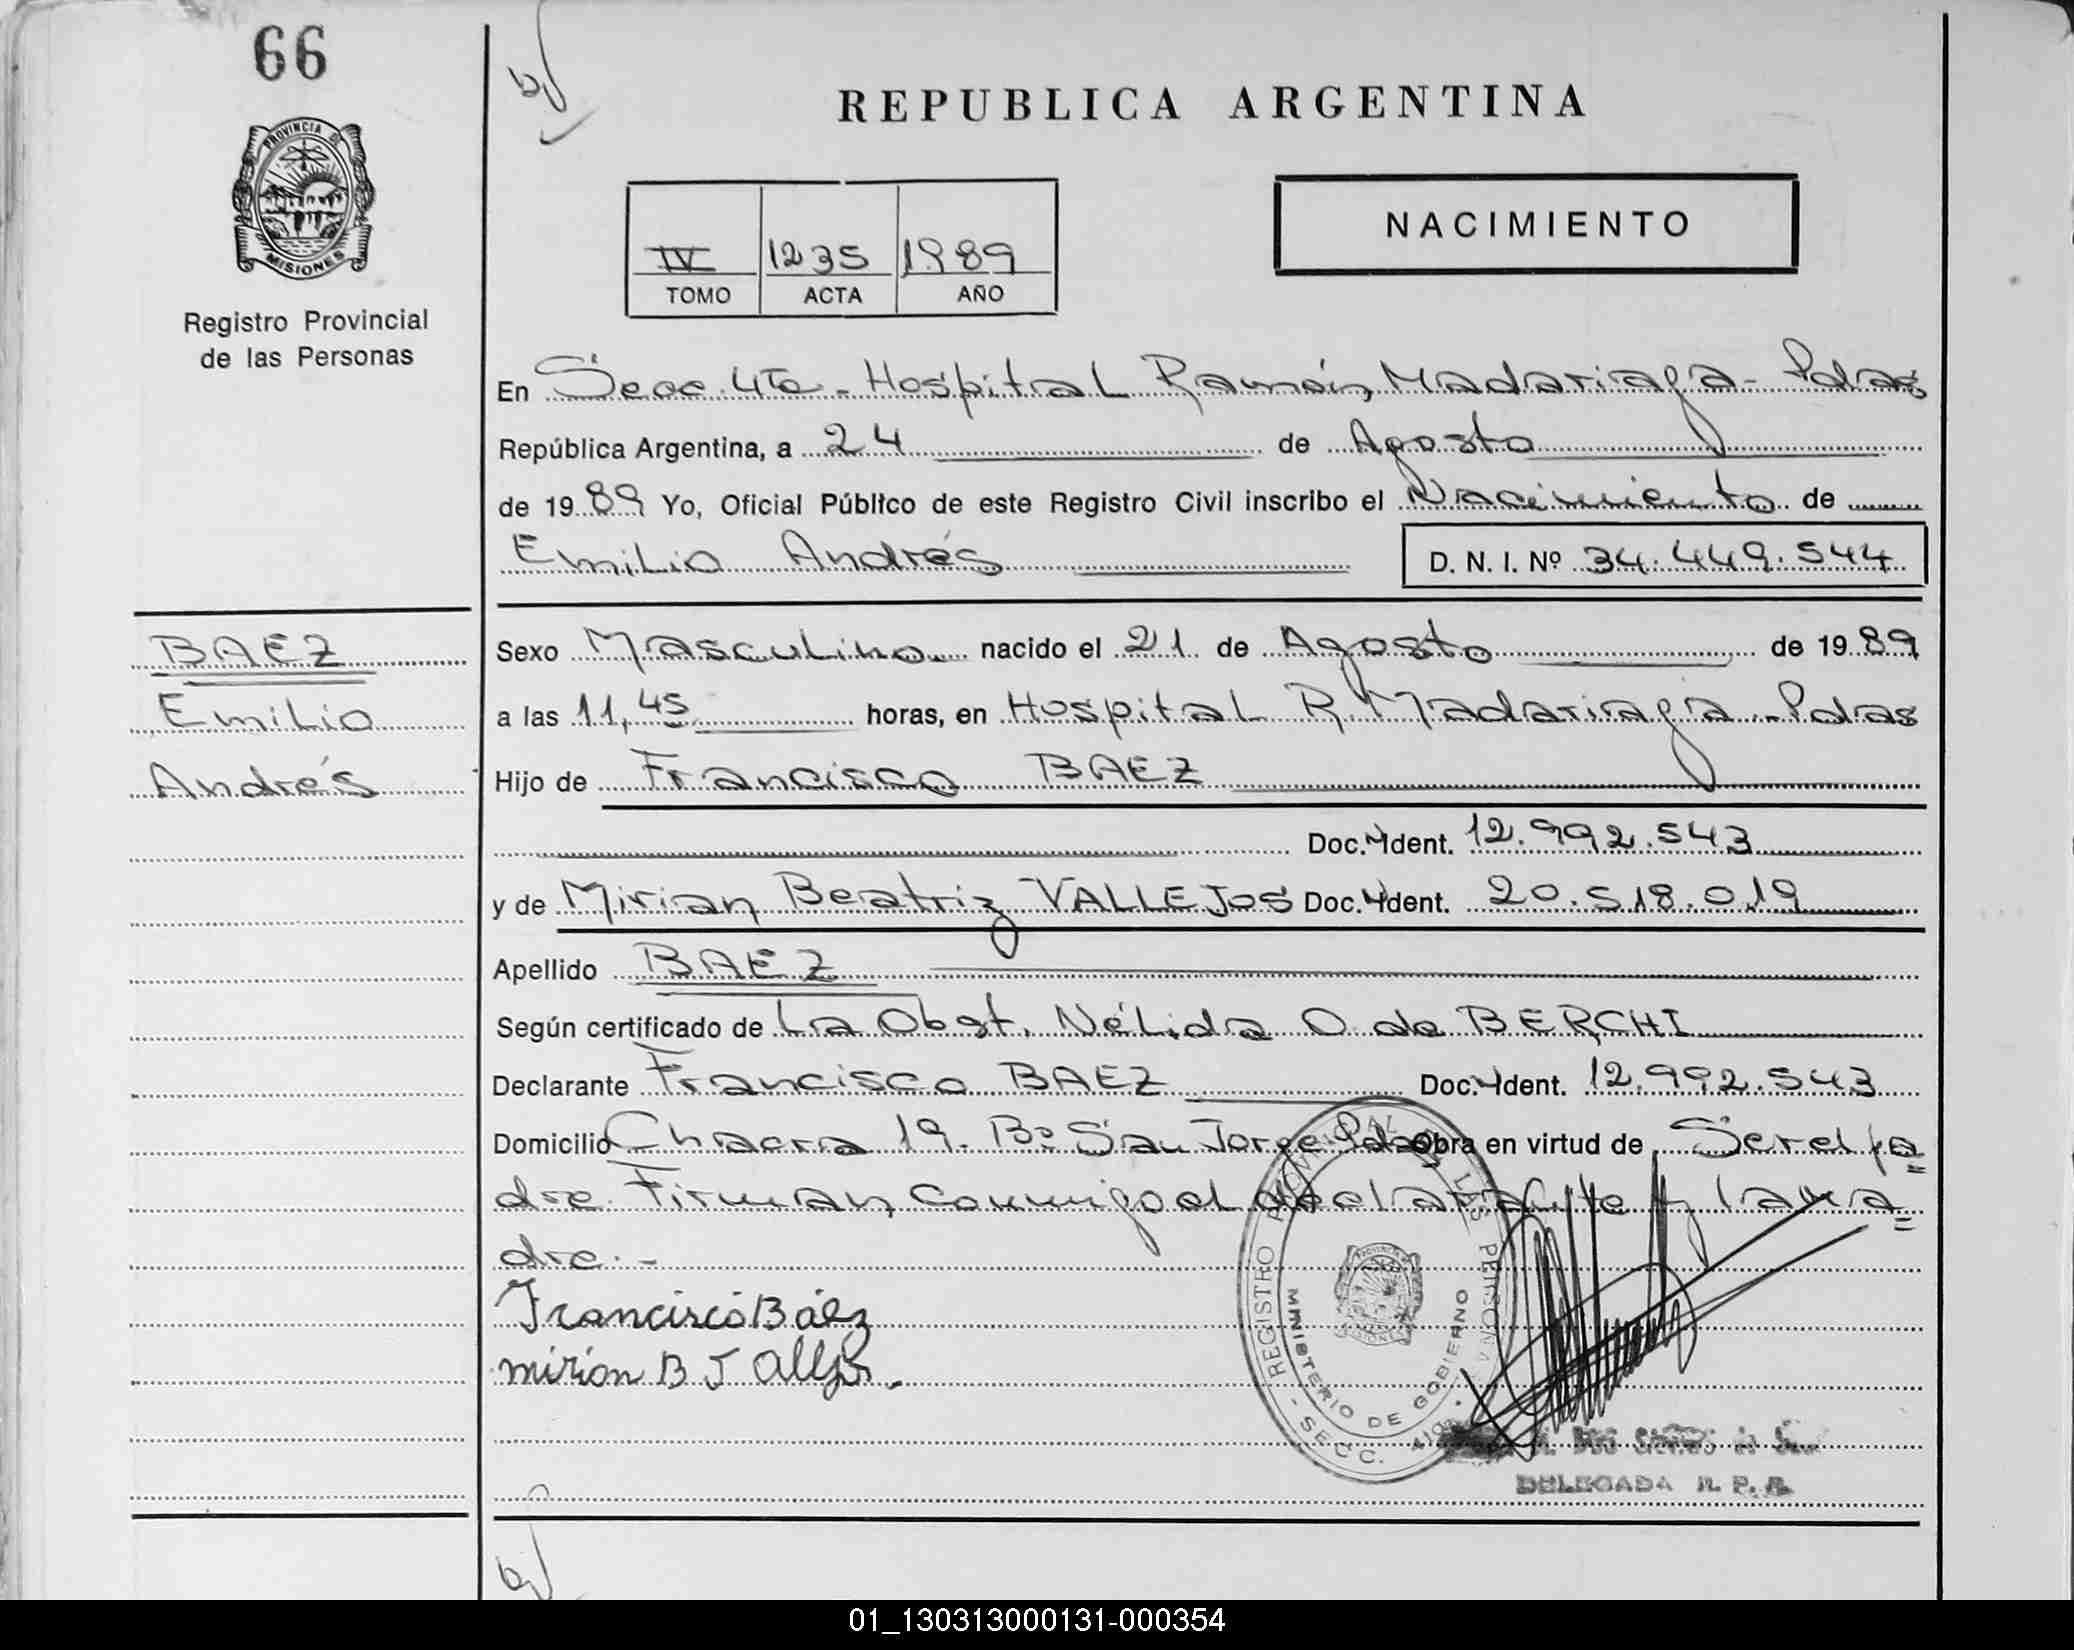 66
REPUBLICA ARGENTINA
PROVINCIA DE
MISIONES
Registro Provincial
de las Personas
NACIMIENTO
IV 1235 1989
TOMO ACTA AÑO
En Secc. 4ta - Hospital Ramón Madariaga - Pdas
República Argentina, a 24 de Agosto
de 1989 Yo, Oficial Público de este Registro Civil inscribo el Nacimiento de
Emilio Andrés D. N. I. Nº 34.449.544
BAEZ
Emilio
Andrés
Sexo Masculino nacido el 21 de Agosto de 1989
a las 11,45 horas, en Hospital R. Madariaga - Pdas
Hijo de Francisco BAEZ
Doc. Ident. 12.992.543
y de Mirian Beatriz VALLEJOS Doc. Ident. 20.518.019
Apellido BAEZ
Según certificado de La Obst. Nélida O. de BERCHI
Declarante Francisco BAEZ Doc. Ident. 12.992.543
Domicilio Chacra 19. Bº San Jorge Pdas Obra en virtud de Ser el pa=
dre. Firman conmigo el declarante y la ma=
dre.-
Francisco Báez
mirian B
REGISTRO PROVINCIAL DE LAS PERSONAS
MINISTERIO DE GOBIERNO
- SECC.
DELEGADA R. P. P.
01_130313000131-000354